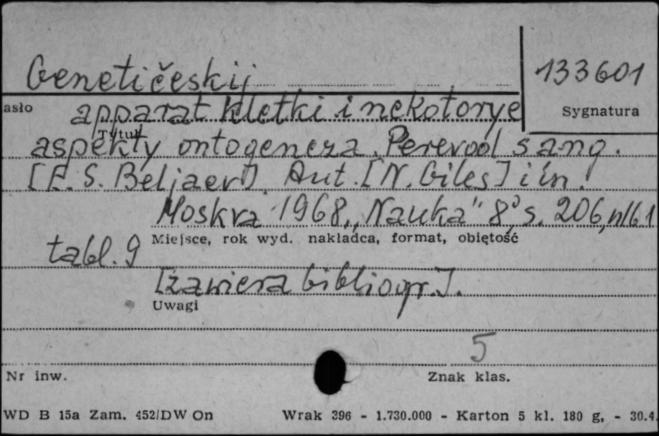 Genetičeskij
133601
asło
apparat kletki i nekotorye
Sygnatura
Tytuł
aspekty ontogeneza. Perevod s ang.
[E. S. Beljaev]. Aut. [N. Giles] i in.
Moskva 1968 „Nauka" 8°, s. 206, nlb 1
Miejsce, rok wyd. nakładca, format, objętość
tabl. 9
[zawiera bibliogr.].
Uwagi
5
Nr inw.
Znak klas.
WD B 15a Zam. 452/DW On Wrak 396 - 1.730.000 - Karton 5 kl. 180 g. - 30.4.